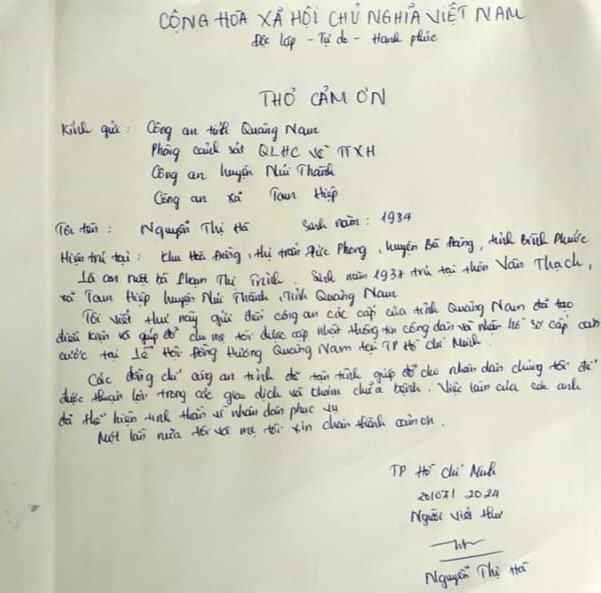 CỘNG HÒA XÃ HỘI CHỦ NGHĨA VIỆT NAM
Độc lập - Tự do - Hạnh phúc
THƠ CẢM ƠN
Kính gửi: Công an tỉnh Quảng Nam
Phòng cảnh sát QLHC về TTXH
Công an huyện Núi Thành
Công an xã Tam Hiệp
Tôi tên: Nguyễn Thị Hà Sinh năm: 1984
Hiện trú tại: khu Hòa Đồng, thị trấn Đức Phong, huyện Bù Đăng, tỉnh Bình Phước
Là con ruột bà Phạm Thị Trinh. Sinh năm 1937 trú tại thôn Vân Thạch,
xã Tam Hiệp huyện Núi Thành, Tỉnh Quảng Nam
Tôi viết thư này gửi đến công an các cấp của tỉnh Quảng Nam đã tạo
điều kiện và giúp đỡ cho mẹ tôi được cập nhật thông tin công dân và nhận hồ sơ cấp căn
cước tại Lễ Hội Đồng Hương Quảng Nam tại TP Hồ Chí Minh.
Các đồng chí công an tỉnh đã tận tình giúp đỡ cho nhân dân chúng tôi để
được thuận lợi trong các giao dịch và khám chữa bệnh. Việc làm của các anh
đã thể hiện tinh thần vì nhân dân phục vụ
Một lần nữa tôi và mẹ tôi xin chân thành cảm ơn.
TP Hồ Chí Minh
20/07/2024
Người viết thư
Nguyễn Thị Hà